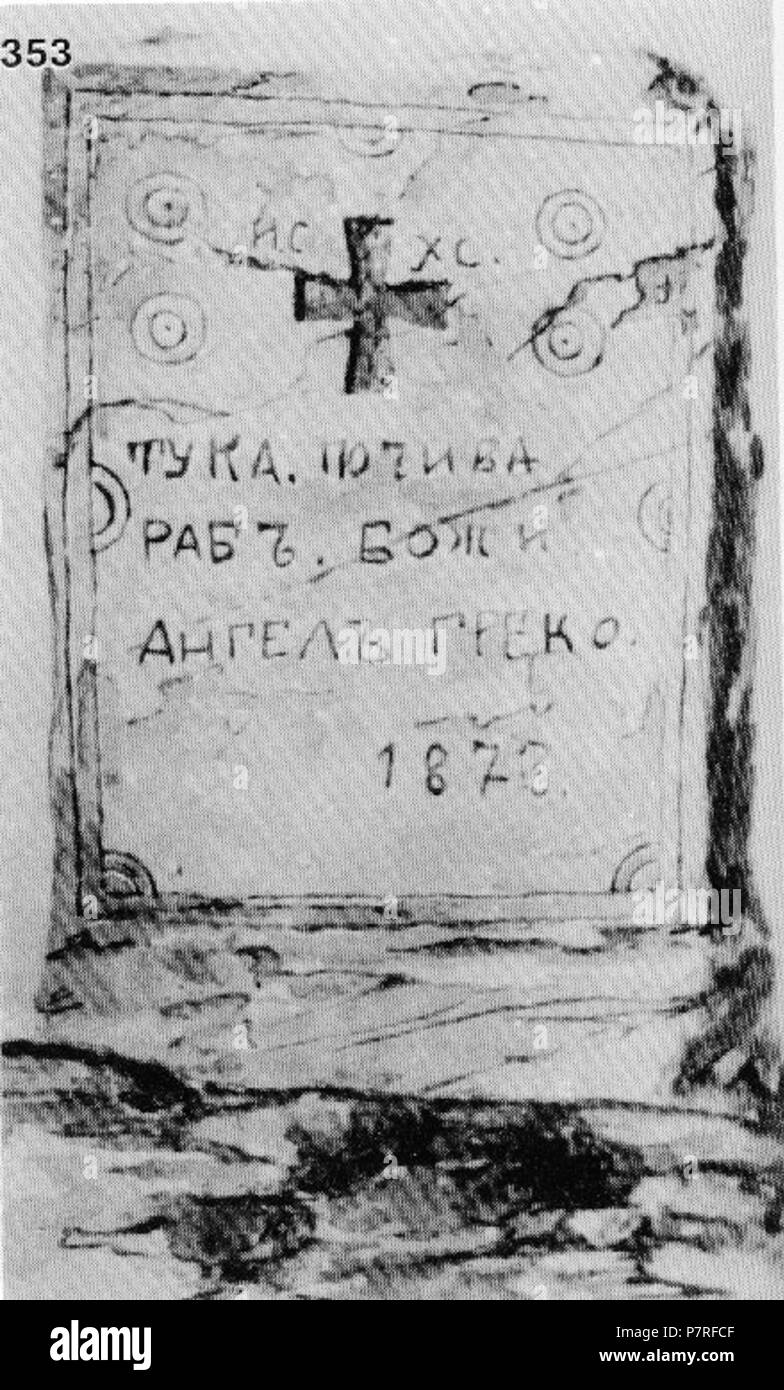 353
ИС ХС.
ТУКА. ПОЧИВА
РАБЪ. БОЖИ
АНГЕЛЪ ГРЕКО.
1878.
alamy
alamy
Image ID: P7RFCF
www.alamy.com